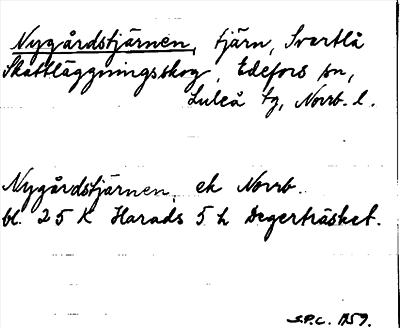 Nygårdstjärnen, tjärn, Svartlå
Skattläggningsskog, Edefors sn,
Luleå tg, Norrb. l.
Nygårdstjärnen, ek Norrb.
bl. 25 K Harads 5 h Degerträsket.
S.P.C. 1959.